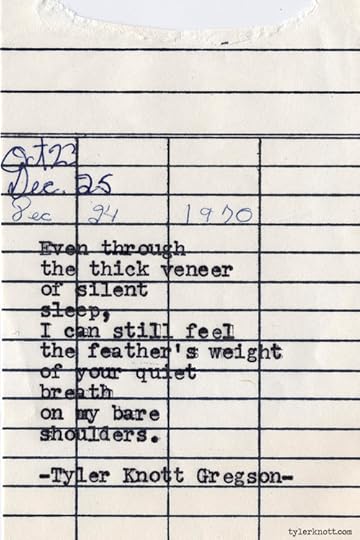 Oct 22
Dec. 25
Dec 24 1970
Even through
the thick veneer
of silent
sleep,
I can still feel
the feather's weight
of your quiet
breath
on my bare
shoulders.
-Tyler Knott Gregson-
tylerknott.com